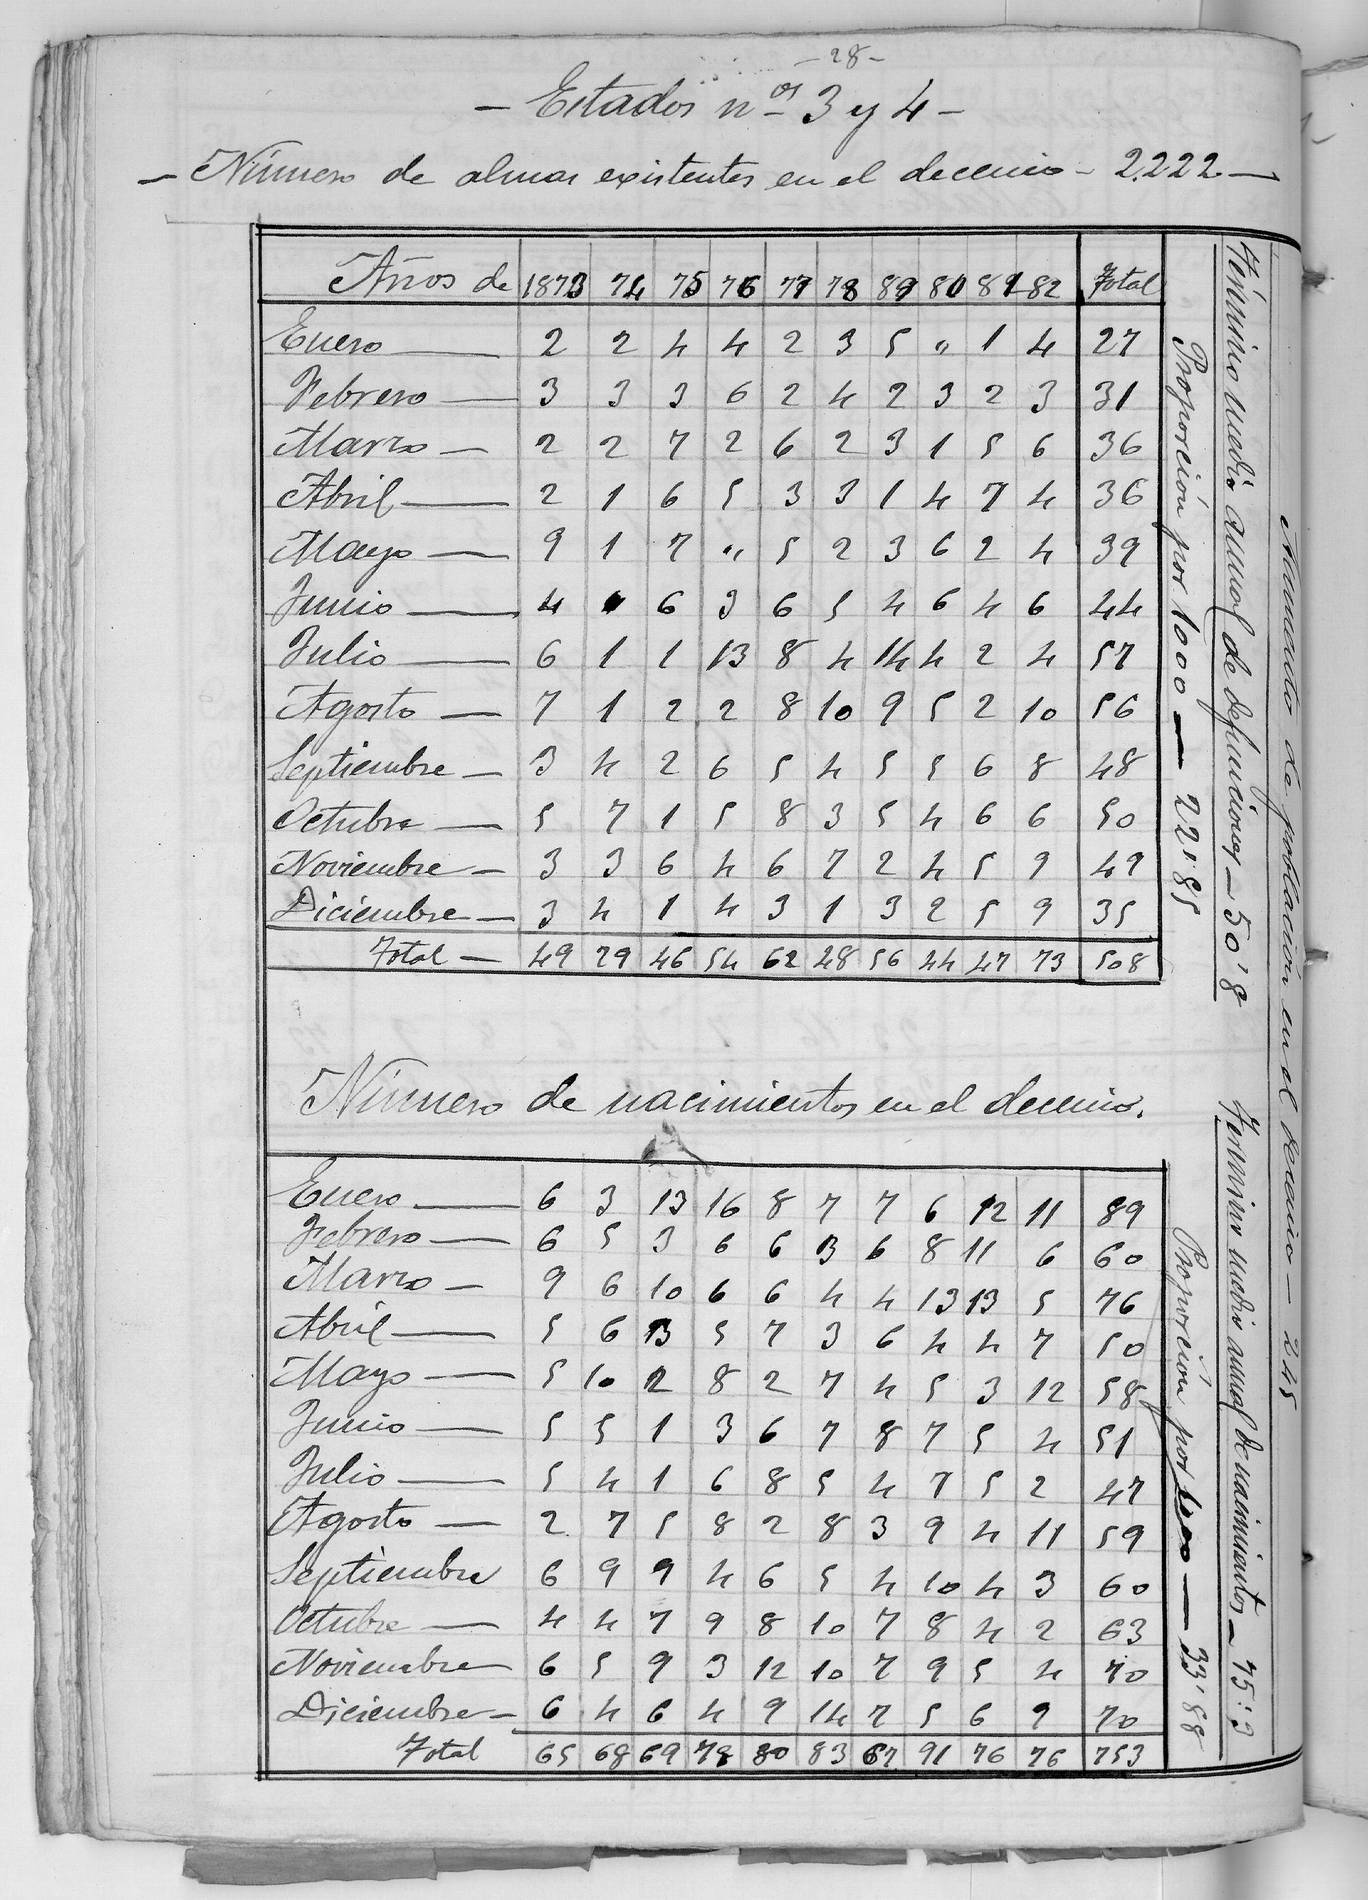 -28-
- Estados nos 3 y 4 -
- Número de almas existentes en el decenio - 2.222 -
Años de 1873 74 75 76 77 78 89 80 81 82 Total
Enero 2 2 4 4 2 3 5 " 1 4 27
Febrero 3 3 3 6 2 4 2 3 2 3 31
Marzo 2 2 7 2 6 2 3 1 5 6 36
Abril 2 1 6 5 3 3 1 4 7 4 36
Mayo 9 1 7 " 5 2 3 6 2 4 39
Junio 4 6 3 6 5 4 6 4 6 44
Julio 6 1 1 13 8 4 14 4 2 4 57
Agosto 7 1 2 2 8 10 9 5 2 10 56
Septiembre 3 4 2 6 5 4 5 5 6 8 48
Octubre 5 7 1 5 8 3 5 4 6 6 50
Noviembre 3 3 6 4 6 7 2 4 5 9 49
Diciembre 3 4 1 4 3 1 3 2 5 9 35
Total 49 29 46 54 62 48 56 44 47 73 508
Proporción por 1000 - 22'85
Término medio anual de defunciones - 50'8
Número de nacimientos en el decenio.
Enero 6 3 13 16 8 7 7 6 12 11 89
Febrero 6 5 3 6 6 3 6 8 11 6 60
Marzo 9 6 10 6 6 4 4 13 13 5 76
Abril 5 6 3 5 7 3 6 4 4 7 50
Mayo 5 10 2 8 2 7 4 5 3 12 58
Junio 5 5 1 3 6 7 8 7 5 4 51
Julio 5 4 1 6 8 5 4 7 5 2 47
Agosto 2 7 5 8 2 8 3 9 4 11 59
Septiembre 6 9 9 4 6 5 4 10 4 3 60
Octubre 4 4 7 9 8 10 7 8 4 2 63
Noviembre 6 5 9 3 12 10 7 9 5 4 70
Diciembre 6 4 6 4 9 14 7 5 6 9 70
Total 65 68 69 78 80 83 67 91 76 76 753
Proporción por 1000 - 33'88
Termino medio anual de nacimientos - 75'3
Aumento de población en el decenio - 245